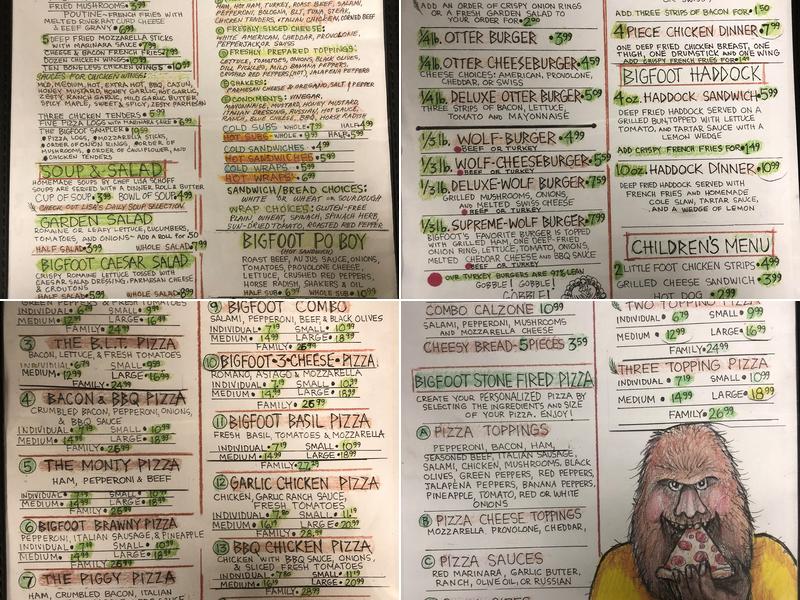 MELTED RIVERRAT CURD CHEESE
& BEEF GRAVY
5 DEEP FRIED MOZZARELLA STICKS
WITH MARINARA SAUCE 7.99
CHEESE & BACON FRENCH FRIES
DOZEN CHICKEN WINGS
TEN BONELESS CHICKEN WINGS • 10.99
SAUCES FOR CHICKEN WINGS:
MILD, MEDIUM, HOT, EXTRA HOT, BBQ, CAJUN,
HONEY MUSTARD, HONEY GARLIC, HOT GARLIC,
SPICY MAPLE, SWEET & SPICY, ZESTY PARMESAN
THREE CHICKEN TENDERS • 5.99
FIVE PIZZA LOGS WITH MARINARA SAUCE
THE BIGFOOT SAMPLER
• PIZZA LOGS, • MOZZARELLA STICKS,
• ORDER OF ONION RINGS, • ORDER OF
MUSHROOM, • ORDER OF CAULIFLOWER, AND
• CHICKEN TENDERS
SOUP & SALAD
HOMEMADE SOUPS BY CHEF LISA SCHOFF
SOUPS ARE SERVED WITH A DINNER ROLL & BUTTER
CUP OF SOUP • 3.99 BOWL OF SOUP 4.99
CHECK OUT LISA'S DAILY SOUP SELECTION
GARDEN SALAD
ROMAINE OR LEAFY LETTUCE, CUCUMBERS,
TOMATOES, AND ONIONS - ADD A ROLL for .50
HALF SALAD WHOLE SALAD 7.99
BIGFOOT CAESAR SALAD
CRISPY ROMAINE LETTUCE TOSSED WITH
CAESAR SALAD DRESSING, PARMESAN CHEESE
& CROUTONS
HALF SALAD 5.99 WHOLE SALAD 8.99
HAM, HOT HAM, TURKEY, ROAST BEEF, SALAMI,
PEPPERONI, BOLOGNA, BLT, TUNA, STEAK,
CHICKEN TENDERS, ITALIAN CHICKEN, CORNED BEEF
FRESHLY SLICED CHEESE:
WHITE AMERICAN, CHEDDAR, PROVOLONE,
PEPPERJACK OR SWISS
FRESHLY PREPARED TOPPINGS:
LETTUCE, TOMATOES, ONIONS, BLACK OLIVES,
DILL PICKLES, MILD BANANA PEPPERS,
CRUSHED RED PEPPERS (HOT) JALAPENO PEPPERS
SHAKERS:
PARMESAN CHEESE • OREGANO, SALT & PEPPER
CONDIMENTS: VINEGAR,
MAYONNAISE, MUSTARD, HONEY MUSTARD,
COLD SUBS WHOLE HALF 4.99
HOT SUBS WHOLE HALF 5.99
COLD SANDWICHES • 4.99
HOT SANDWICHES • 5.99
COLD WRAPS 5.99
HOT WRAPS • 6.99
SANDWICH/BREAD CHOICES:
WHITE OR WHEAT OR SOURDOUGH
WRAP CHOICES: GLUTEN-FREE
PLAIN, WHEAT, SPINACH, SPINACH HERB,
SUN-DRIED TOMATO, ROASTED RED PEPPER
BIGFOOT PO BOY
(HOT SANDWICH)
ROAST BEEF, AU JUS SAUCE, ONIONS,
TOMATOES, PROVOLONE CHEESE,
LETTUCE, CRUSHED RED PEPPERS,
HORSE RADISH, SHAKERS & OIL
HALF SUB 6.99 WHOLE SUB • 10.99
ADD AN ORDER OF CRISPY ONION RINGS
OR A FRESH GARDEN SALAD TO
YOUR ORDER FOR • 2.00
1/4 lb. OTTER BURGER • 3.99
1/4 lb. OTTER CHEESEBURGER 4.59
CHEESE CHOICES: AMERICAN, PROVOLONE,
CHEDDAR, OR SWISS
1/4 lb. DELUXE OTTER BURGER 5.09
THREE STRIPS OF BACON, LETTUCE,
TOMATO AND MAYONNAISE
1/3 lb. WOLF-BURGER • 4.99
BEEF OR TURKEY
1/3 lb. WOLF-CHEESEBURGER • 5.59
BEEF OR TURKEY
1/3 lb. DELUXE-WOLF BURGER 7.59
GRILLED MUSHROOMS, ONIONS,
AND MELTED SWISS CHEESE
BEEF OR TURKEY
1/3 lb. SUPREME-WOLF BURGER 7.99
BIGFOOT'S FAVORITE BURGER IS TOPPED
WITH GRILLED HAM, ONE DEEP-FRIED
ONION RING, LETTUCE, TOMATO, ONIONS,
MELTED CHEDDAR CHEESE AND BBQ SAUCE
BEEF OR TURKEY
OUR TURKEY BURGERS ARE 97% LEAN
GOBBLE! GOBBLE!
GOBBLE!
ADD THREE STRIPS OF BACON FOR • 1.50
4 PIECE CHICKEN DINNER 7.99
ONE DEEP FRIED CHICKEN BREAST, ONE
THIGH, ONE DRUMSTICK AND ONE WING
ADD CRISPY FRENCH FRIES FOR 1.49
BIGFOOT HADDOCK
4 oz. HADDOCK SANDWICH • 5.99
DEEP FRIED HADDOCK SERVED ON A
GRILLED BUN TOPPED WITH LETTUCE
TOMATO, AND TARTAR SAUCE WITH A
LEMON WEDGE
ADD CRISPY FRENCH FRIES FOR 1.49
10 oz. HADDOCK DINNER • 10.99
DEEP FRIED HADDOCK SERVED WITH
FRENCH FRIES AND HOMEMADE
COLE SLAW, TARTAR SAUCE,
AND A WEDGE OF LEMON
CHILDREN'S MENU
2 LITTLE FOOT CHICKEN STRIPS • 4.99
GRILLED CHEESE SANDWICH • 3.99
HOT DOG • 2.99
GREEN PEPPERS & FRESH TOMATOES
FAMILY • 24.99
3 THE B.L.T. PIZZA
BACON, LETTUCE, & FRESH TOMATOES
INDIVIDUAL • 6.79 SMALL • 9.99
MEDIUM • 12.99 LARGE • 16.99
FAMILY • 24.99
4 BACON & BBQ PIZZA
CRUMBLED BACON, PEPPERONI, ONIONS,
& BBQ SAUCE
INDIVIDUAL • 7.19 SMALL • 10.99
MEDIUM • 14.99 LARGE • 18.99
FAMILY • 26.99
5 THE MONTY PIZZA
HAM, PEPPERONI & BEEF
INDIVIDUAL • 7.19 SMALL • 10.99
MEDIUM • 14.99 LARGE • 18.99
FAMILY • 26.99
6 BIGFOOT BRAWNY PIZZA
PEPPERONI, ITALIAN SAUSAGE, & PINEAPPLE
INDIVIDUAL SMALL • 10.99
MEDIUM LARGE • 18.99
FAMILY 26.99
7 THE PIGGY PIZZA
HAM, CRUMBLED BACON, ITALIAN
9 BIGFOOT COMBO
SALAMI, PEPPERONI, BEEF, & BLACK OLIVES
INDIVIDUAL • 7.19 SMALL • 10.99
MEDIUM • 14.99 LARGE • 18.99
FAMILY • 26.99
10 BIGFOOT • 3 • CHEESE • PIZZA
ROMANO, ASIAGO & MOZZARELLA
INDIVIDUAL • 7.19 SMALL • 10.99
MEDIUM • 14.99 LARGE • 18.99
FAMILY • 26.99
11 BIGFOOT BASIL PIZZA
FRESH BASIL, TOMATOES, & MOZZARELLA
INDIVIDUAL • 7.19 SMALL • 10.99
MEDIUM • 14.99 LARGE • 18.99
FAMILY • 27.99
12 GARLIC CHICKEN PIZZA
CHICKEN, GARLIC RANCH SAUCE,
FRESH TOMATOES
INDIVIDUAL SMALL • 11.99
MEDIUM • 16.99 LARGE • 20.99
FAMILY • 28.99
13 BBQ CHICKEN PIZZA
CHICKEN WITH BBQ SAUCE, ONIONS,
& SLICED FRESH TOMATOES
INDIVIDUAL SMALL • 11.99
MEDIUM LARGE • 20.99
FAMILY • 28.99
COMBO CALZONE 10.99
SALAMI, PEPPERONI, MUSHROOMS
AND MOZZARELLA CHEESE
CHEESY BREAD - 5 PIECES 3.59
BIGFOOT STONE FIRED PIZZA
CREATE YOUR PERSONALIZED PIZZA BY
SELECTING THE INGREDIENTS AND SIZE
OF YOUR PIZZA, ENJOY!
A PIZZA TOPPINGS
PEPPERONI, BACON, HAM,
SEASONED BEEF, ITALIAN SAUSAGE,
SALAMI, CHICKEN, MUSHROOMS, BLACK
OLIVES, GREEN PEPPERS, RED PEPPERS,
JALAPENA PEPPERS, BANANA PEPPERS,
PINEAPPLE, TOMATO, RED OR WHITE
ONIONS
B PIZZA CHEESE TOPPINGS
MOZZARELLA, PROVOLONE, CHEDDAR,
C PIZZA SAUCES
RED MARINARA, GARLIC BUTTER,
RANCH, OLIVE OIL, OR RUSSIAN
TWO TOPPING PIZZA
INDIVIDUAL • 6.79 SMALL • 9.99
MEDIUM • 12.99 LARGE • 16.99
FAMILY • 24.99
THREE TOPPING PIZZA
INDIVIDUAL • 7.19 SMALL • 10.99
MEDIUM • 14.99 LARGE • 18.99
FAMILY • 26.99